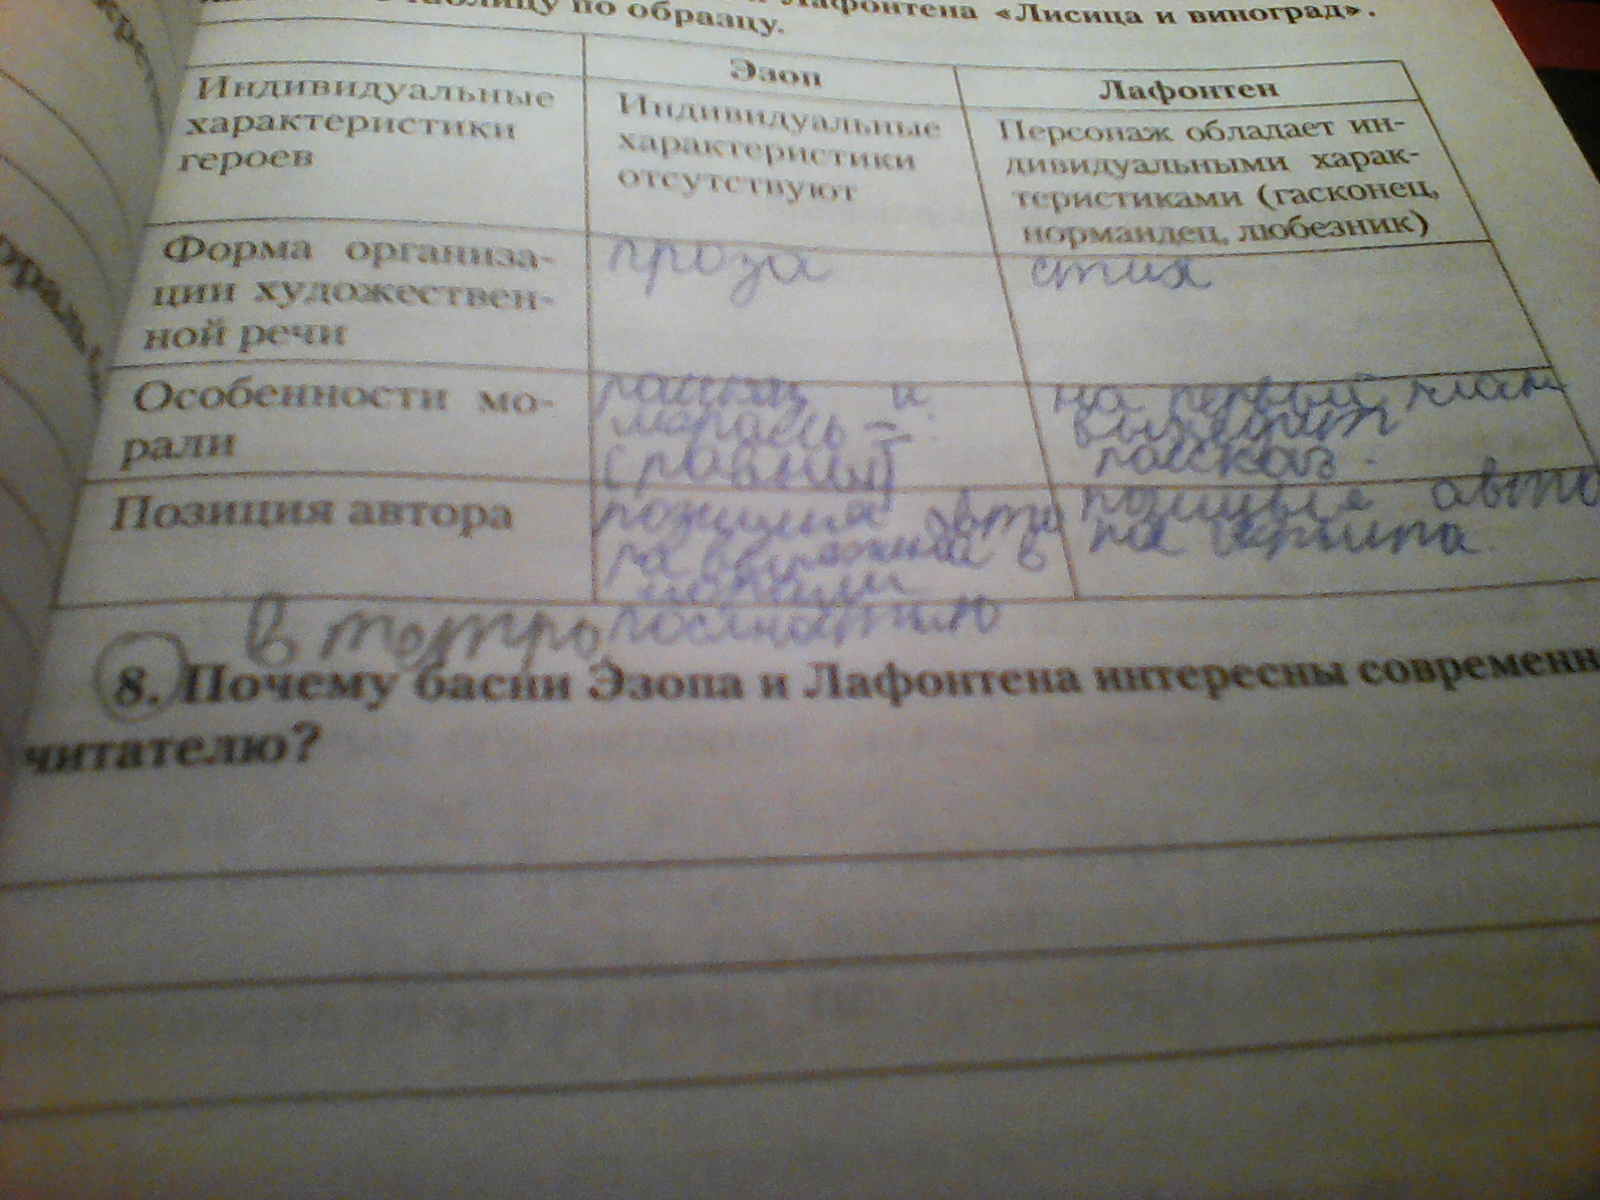 Лафонтена «Лисица и виноград».
таблицу по образцу.
Эзоп
Лафонтен
Индивидуальные
характеристики
героев
Индивидуальные
характеристики
отсутствуют
Персонаж обладает ин-
дивидуальными харак-
теристиками (гасконец,
нормандец, любезник)
Форма организа-
ции художествен-
ной речи
проза
стих
Особенности мо-
рали
рассказ и
мораль =
(равны)
на первый план
выходит
рассказ.
Позиция автора
позиция авто
ра выражена в
морали
полностью
позиция авто
ра скрыта.
в тетра
8. Почему басни Эзопа и Лафонтена интересны современн
читателю?